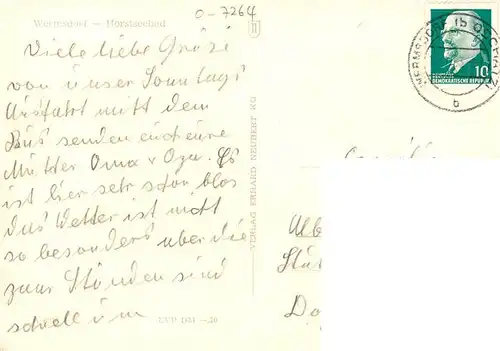 Wermsdorf - Horstseebad
0-7264
Viele liebe Grüse
von unser Sonntags
Ausfahrt mitt dem
Bus senden euch eure
Mutter Oma u Opa. Es
ist hier sehr schön blos
das Wetter ist nicht
so besonders aber die
paar Stunden sind
schnell um
EVP DM -,20
VERLAG ERHARD NEUBERT KG
WERMSDORF
b
10
DEUTSCHE DEMOKRATISCHE REPUBLIK